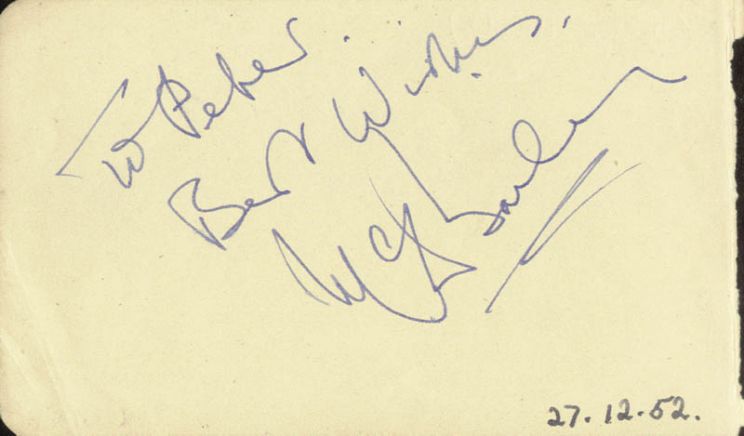 To Peter.
Best Wishes,
27.12.52.